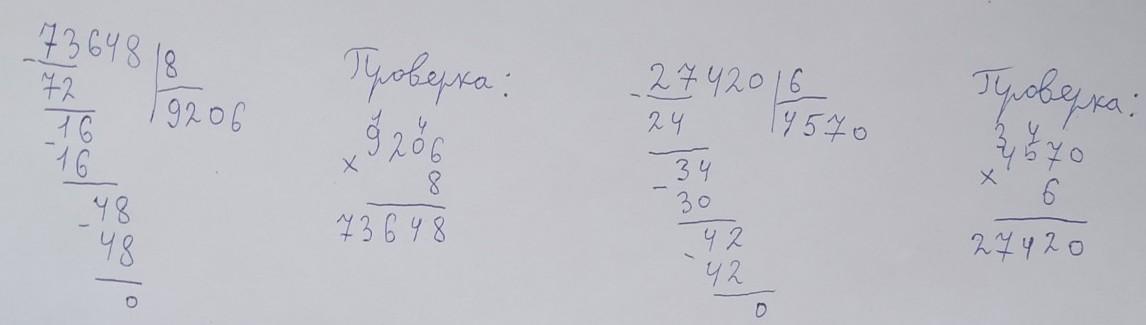 73648 | 8
- 72 | 9206
16
- 16
48
- 48
0
Проверка:
1 4
9206
× 8
73648
27420 | 6
- 24 | 4570
34
- 30
42
- 42
0
Проверка:
3 4
4570
× 6
27420